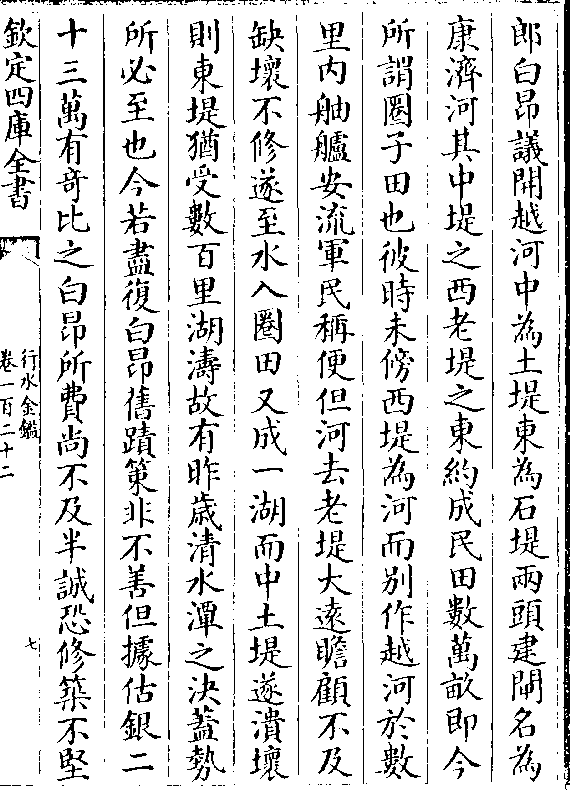 郎白昂議開越河中為土堤東為石堤兩頭建閘名為
康濟河其中堤之西老堤之東約成民田數萬畝即今
所謂圈子田也彼時未傍西堤為河而别作越河於數
里内舳艫安流軍民稱便但河去老堤大遠瞻顧不及
缺壞不修遂至水入圈田又成一湖而中土堤遂潰壞
則東堤猶受數百里湖濤故有昨歲清水潭之決葢勢
所必至也今若盡復白昂舊蹟策非不善但據估銀二
十三萬有奇比之白昂所費尚不及半誠恐修築不堅
欽定四庫全書
行水金鑑
卷一百二十二
七